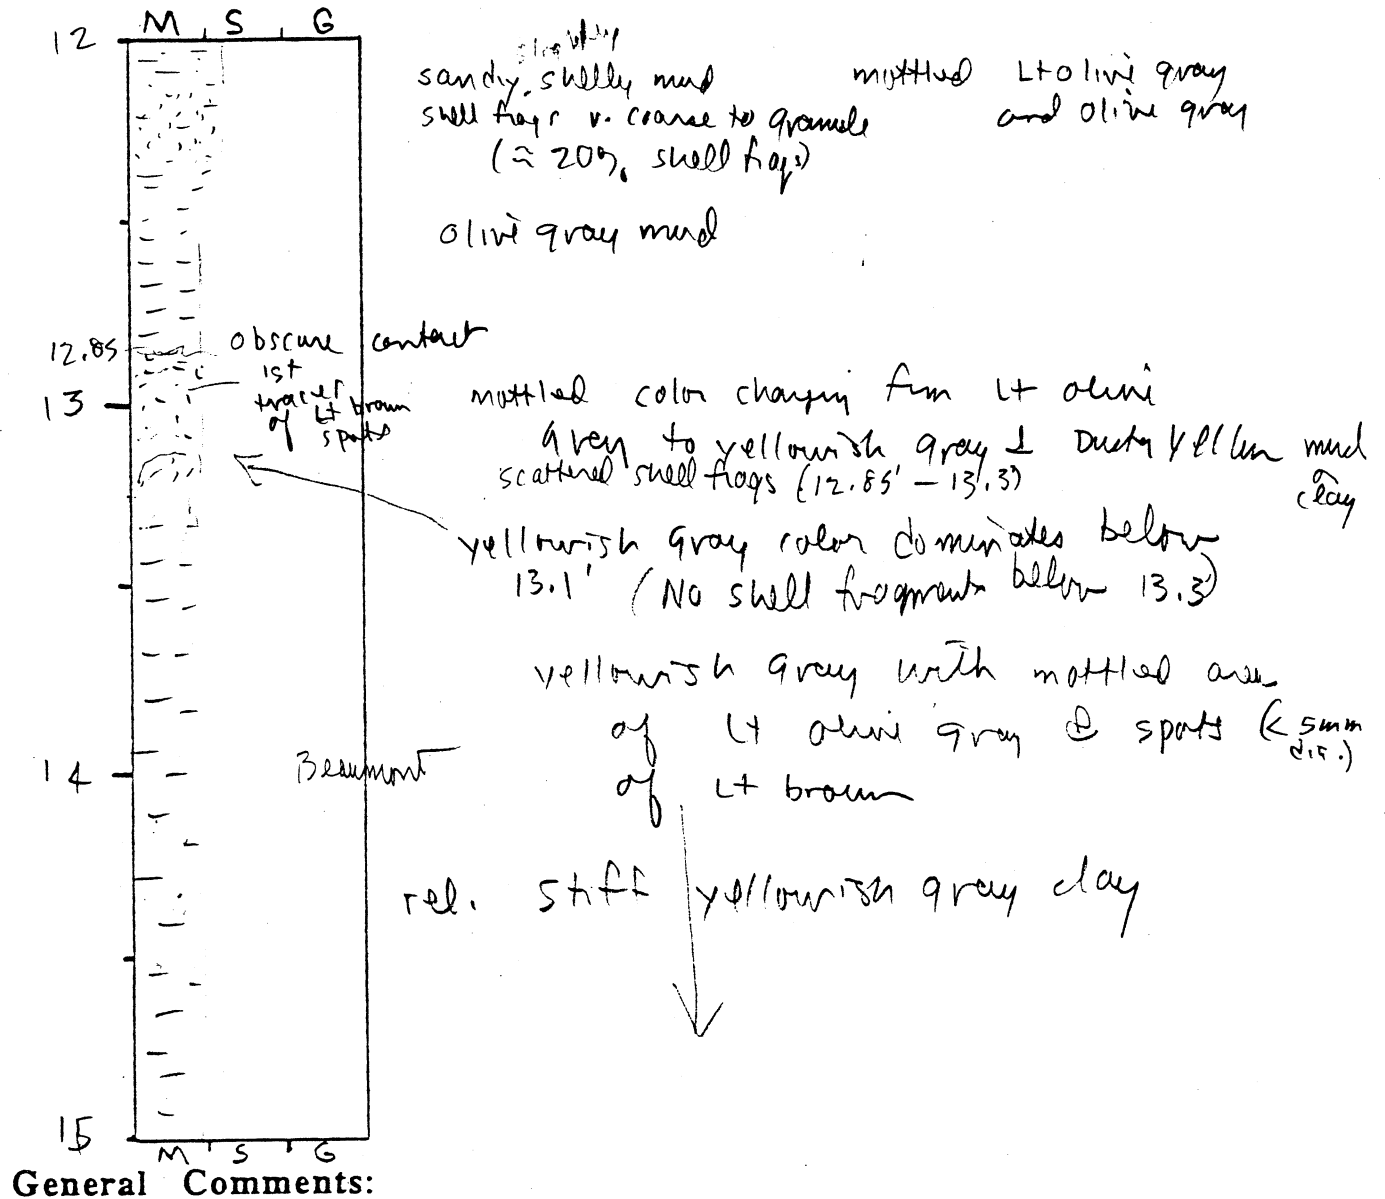 M S G
12
slightly
sandy, shelly mud mottled Lt olive gray
shell frags v. coarse to granule and olive gray
(≈ 20% shell frags)
olive gray mud
12.85 obscure contact
1st
traces
of Lt brown
spots
13
mottled color changing from Lt olive
grey to yellowish gray & Dusky Yellow mud
scattered shell frags (12.85' - 13.3')
clay
yellowish gray color dominates below
13.1' (No shell fragments below 13.3')
yellowish gray with mottled areas
of Lt olive gray & spots (< 5mm
dia.)
14 Beaumont
of Lt brown
rel. stiff yellowish gray clay
15
M S G
General Comments: